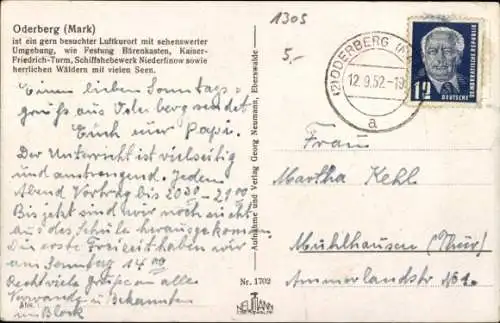 Oderberg (Mark)
ist ein gern besuchter Luftkurort mit sehenswerter
Umgebung, wie Festung Bärenkasten, Kaiser-
Friedrich-Turm, Schiffshebewerk Niederfinow sowie
herrlichen Wäldern mit vielen Seen.
Einen lieben Sonntags-
gruß aus Oderberg sendet
Euch euer Papi.
Der Unterricht ist vielseitig
und anstrengend. Jeden
Abend Vortrag bis 20 30 - 21 00
Bis jetzt sind wir noch nicht
aus der Schule herausgekommen.
Die erste Freizeit haben wir
am Sonntag 14 00
Recht viele Grüße an alle
Verwandte u. Bekannten
im Block
Aufnahme und Verlag Georg Neumann, Eberswalde
Nr. 1702
NEUMANN
EBERSWALDE
1305
5,-
(2) ODERBERG (M
12.9.52-19
a
12
DEUTSCHE
DEMOKRATISCHE REPUBLIK
Frau
Martha Kehl
Mühlhausen (Thür)
Ammerlandstr No 1.